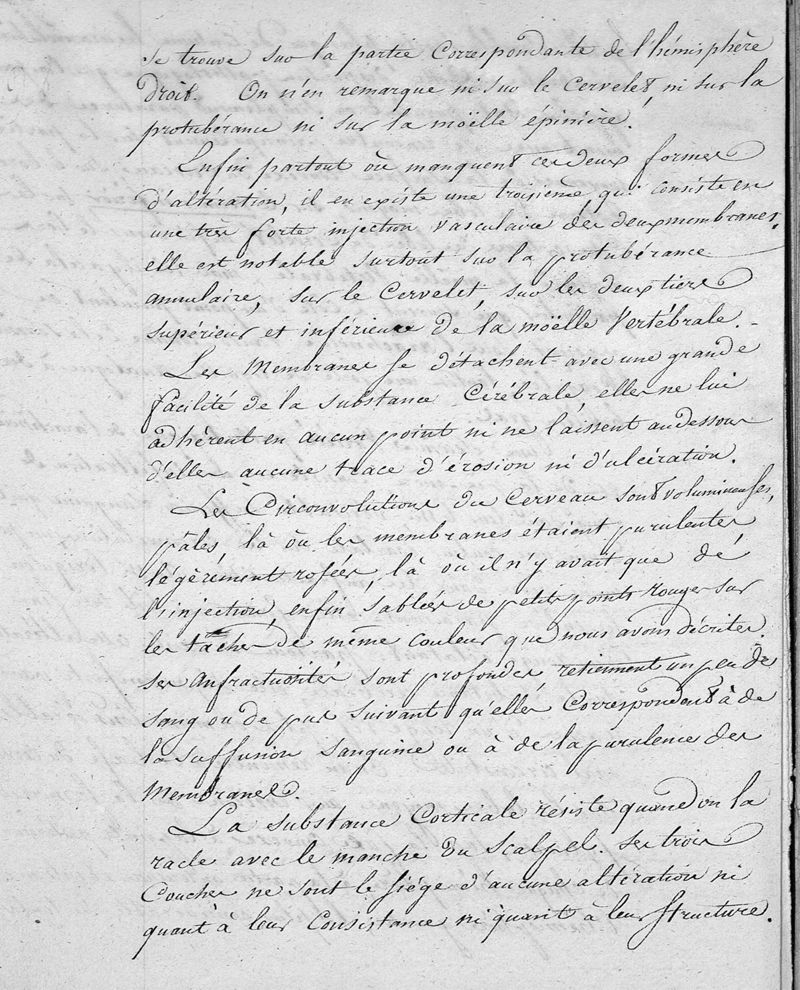 se trouve sur la partie Correspondante de l'hémisphère
droit. On n'en remarque ni sur le Cervelet, ni sur la
protubérance ni sur la moëlle épinière.
Enfin partout où manquent ces deux formes
d'altération, il en existe une troisième qui consiste en
une très forte injection vasculaire des deux membranes,
elle est notable surtout sur la protubérance
annulaire, sur le Cervelet, sur les deux tiers
supérieur et inférieur de la moëlle Vertébrale.
Les Membranes se détachent avec une grande
facilité de la substance Cérébrale, elles ne lui
adhèrent en aucun point ni ne laissent au dessous
d'elles aucune trace d'érosion ni d'ulcération.
Les Circonvolutions du Cerveau sont volumineuses,
pâles, là où les membranes étaient purulentes
légèrement rosées, là où il n'y avait que de
l'injection, enfin sablées de petits points rouges sur
les taches de même couleur que nous avons décrites.
ses anfractuosités sont profondes, retiennent un peu de
sang ou de pus suivant qu'elles Correspondent à de
la suffusion sanguine ou à de la purulence des
Membranes.
La substance Corticale résiste quand on la
racle avec le manche du Scalpel. Ses trois
Couches ne sont le siége d'aucune altération ni
quant à leur Consistance ni quant à leur structure.